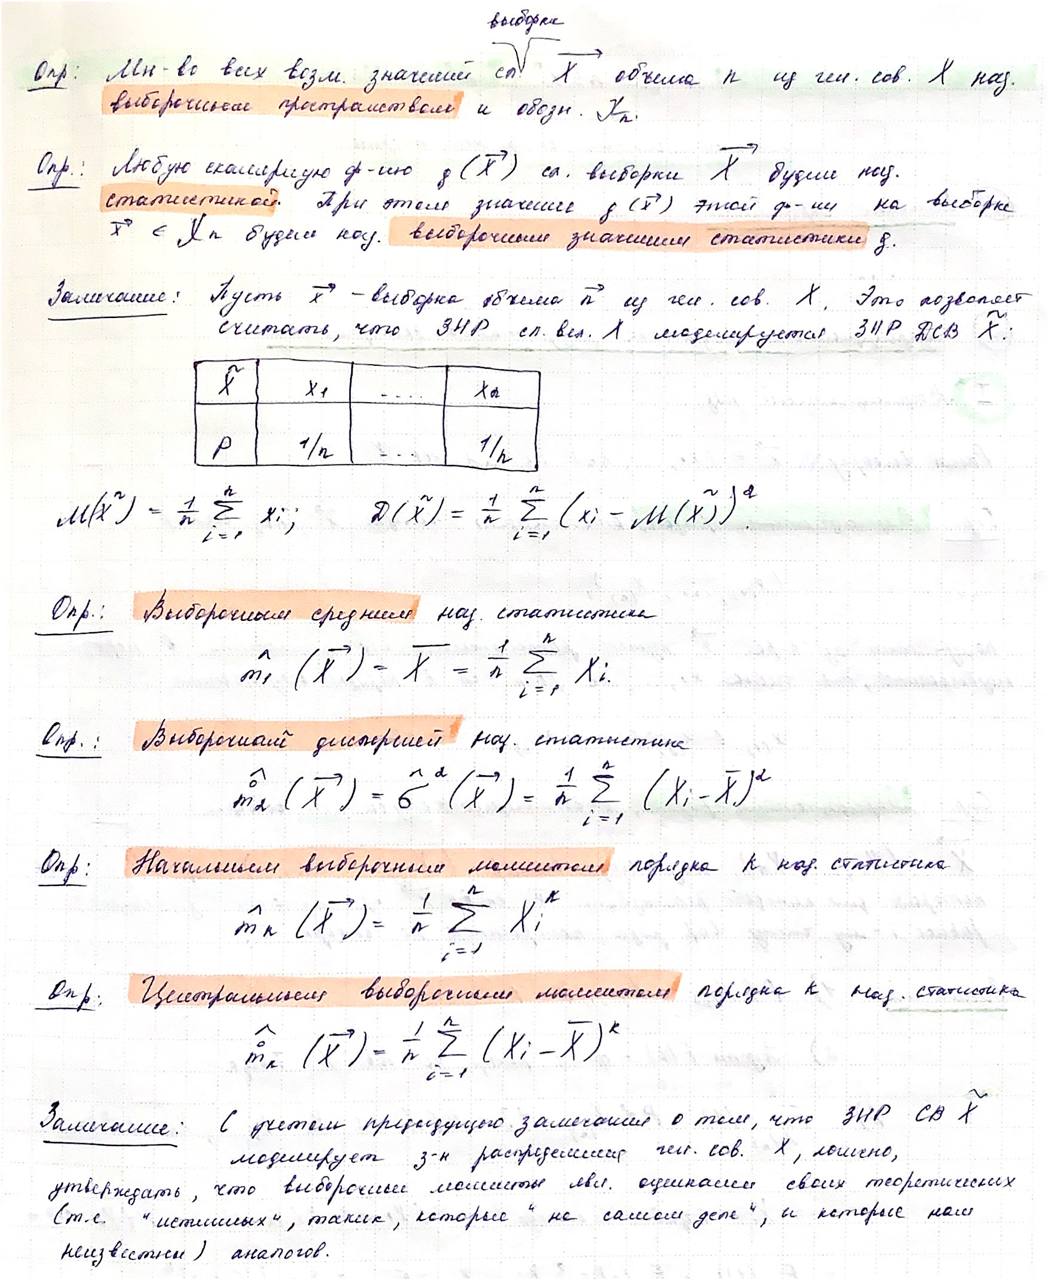 выборки
Опр: Мн-во всех возм. значений сл. X⃗ объема n из ген. сов. X наз.
выборочным пространством и обозн. 𝒳n.
Опр.: Любую скалярную ф-ию g(X⃗) сл. выборки X⃗ будем наз.
статистикой. При этом значение g(x⃗) этой ф-ии на выборке
x⃗ ∈ 𝒳n будем наз. выборочным значением статистики g.
Замечание: Пусть x⃗ - выборка объема n⃗ из ген. сов. X. Это позволяет
считать, что ЗНР сл. вел. X моделируется ЗНР ДСВ X̃:
X̃ x1 .... xn
P 1/n ... 1/n
M(X̃) = 1/n ∑_{i=1}^{n} xi; D(X̃) = 1/n ∑_{i=1}^{n} (xi - M(X̃))².
Опр.: Выборочным средним наз. статистика
m̂1 (X⃗) = X̅ = 1/n ∑_{i=1}^{n} Xi.
Опр.: Выборочной дисперсией наз. статистика
m̊̂2 (X⃗) = σ̂² (X⃗) = 1/n ∑_{i=1}^{n} (Xi - X̅)²
Опр: Начальным выборочным моментом порядка k наз. статистика
m̂k (X⃗) = 1/n ∑_{i=1}^{n} Xi^k
Опр: Центральным выборочным моментом порядка k наз. статистика
m̊̂k (X⃗) = 1/n ∑_{i=1}^{n} (Xi - X̅)^k
Замечание: С учетом предыдущего замечания о том, что ЗНР СВ X̃
моделирует з-н распределения ген. сов. X, можно,
утверждать, что выборочные моменты явл. оценками своих теоретических
(т.е. "истинных", таких, которые "на самом деле", и которые нам
неизвестны) аналогов.